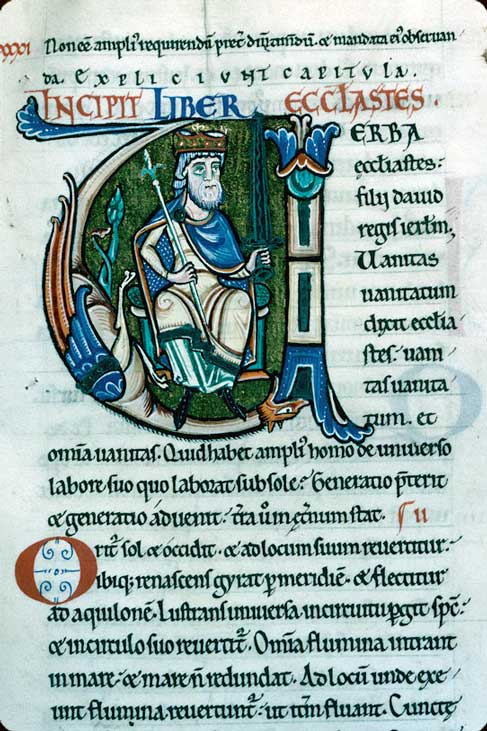 xxxi Non eē ampli' requirendū pret̄ dm̄ timendū. & mandata ei' obseruan
da. Expliciunt capitula.
INCIPIT LIBER ECCLASTES.
VERBA
eccliastes:
filii dauid
regis ierlm̄;
Uanitas
uanitatum
dixit ecclia
stes: uani
tas uanita
tum. et
om̄ia uanitas. Quid habet ampli' homo de uniuerso
labore suo quo laborat sub sole? Generatio p̄terit
& generatio aduenit. t̄ra u͛o in et̄num stat.
Orit̄ sol & occidit. & ad locum suum reuertitur.
ibiq; renascens gyrat p meridiē. & flectitur
ad aquilonē. Lustrans uniuersa in circuitu pgit sp̄c.
& in circulo suo reuertit̄. Om̄ia flumina intrant
in mare. & mare n̄ redundat. Ad locū unde exe
unt flumina reuertunt̄. ut it̄m fluant. Cunctę